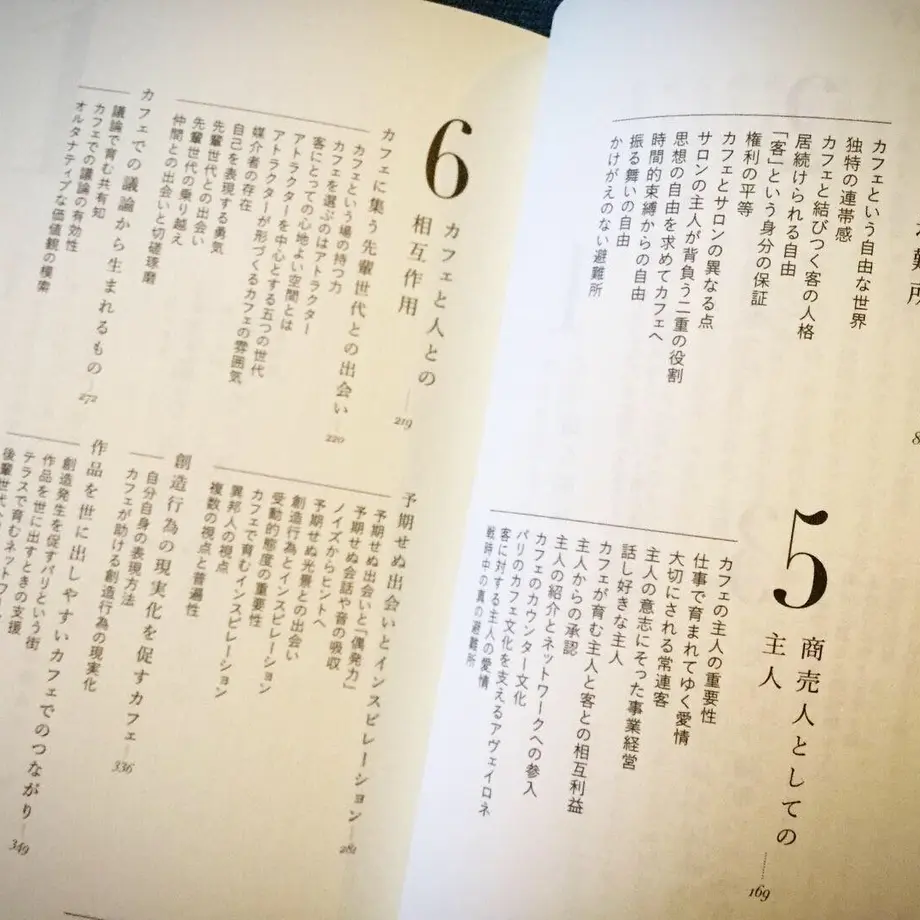 難所
カフェという自由な世界
独特の連帯感
カフェと結びつく客の人格
居続けられる自由
「客」という身分の保証
権利の平等
カフェとサロンの異なる点
サロンの主人が背負う二重の役割
思想の自由を求めてカフェへ
時間的束縛からの自由
振る舞いの自由
かけがえのない避難所
5
商売人としての
主人
169
カフェの主人の重要性
仕事で育まれてゆく愛情
大切にされる常連客
主人の意志にそった事業経営
話し好きな主人
カフェが育む主人と客との相互利益
主人からの承認
主人の紹介とネットワークへの参入
カフェのカウンター文化
パリのカフェ文化を支えるアヴェイロネ
客に対する主人の愛情
戦時中の真の避難所
6
カフェと人との
相互作用
219
カフェに集う先輩世代との出会い
220
カフェという場の持つ力
カフェを選ぶのはアトラクター
客にとっての心地よい空間とは
アトラクターを中心とする五つの世代
媒介者が形づくるカフェの雰囲気
媒介者の存在
自己を表現する勇気
先輩世代との出会い
先輩世代の乗り越え
仲間との出会いと切磋琢磨
カフェでの議論から生まれるもの
272
議論で育む共有知
カフェでの議論の有効性
オルタナティブな価値観の模索
予期せぬ出会いとインスピレーション
281
予期せぬ出会いと「偶発力」
予期せぬ会話や音の吸収
ノイズからヒントへ
予期せぬ光景との出会い
創造行為とインスピレーション
受動的態度の重要性
カフェで育むインスピレーション
異邦人の視点
複数の視点と普遍性
創造行為の現実化を促すカフェ
336
自分自身の表現方法
カフェが助ける創造行為の現実化
作品を世に出しやすいカフェでのつながり
349
創造発生を促すパリという街
作品を世に出すときの支援
テラスで育むネットワーク
後輩世代